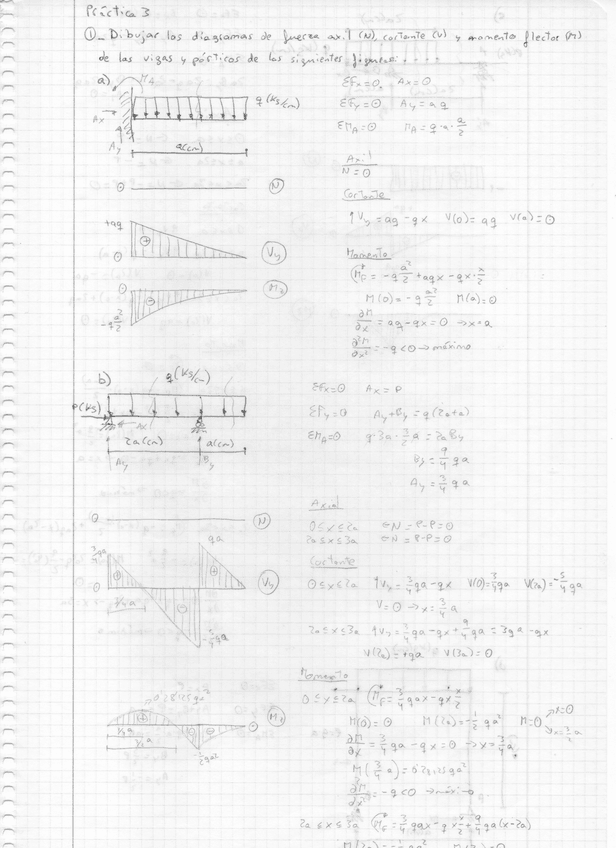 Práctica 3
①_ Dibujar los diagramas de fuerza axil (N), cortante (V) y momento flector (M)
de las vigas y pórticos de las siguientes figuras:
a)
M_A
q (kg/cm)
A_x
A_y
a(cm)
ΣF_x=0, A_x=0
ΣF_y=0 A_y=aq
ΣM_A=0 M_A=q·a·a/2
Axil
N=0
0 N
Cortante
↑V_y=aq-qx V(0)=aq V(a)=0
+aq
0 V_y
Momento
M_F=-q a²/2+aqx-qx·x/2
M(0)=-q a²/2 M(a)=0
∂M/∂x=aq-qx=0 → x=a
∂²M/∂x²=-q<0 → máximo
0
-q a²/2
b)
q (kg/cm)
P(kg)
A_x
2a(cm) a(cm)
A_y B_y
ΣF_x=0 A_x=P
ΣF_y=0 A_y+B_y=q(2a+a)
ΣM_A=0 q·3a·3/2 a=2aB_y
B_y=9/4 qa
A_y=3/4 qa
Axial
0≤x≤2a N=P-P=0
2a≤x≤3a N=P-P=0
0 N
Cortante
0≤x≤2a ↑V_y=3/4 qa-qx V(0)=3/4 qa V(2a)=-5/4 qa
V=0 → x=3/4 a
2a≤x≤3a ↑V_y=3/4 qa-qx+9/4 qa=3qa-qx
V(2a)=+qa V(3a)=0
3/4 qa
qa
0 V_y
3/4 a
-5/4 qa
Momento
0≤x≤2a M_F=3/4 qax-qx x/2
M(0)=0 M(2a)=-1/2 qa² M=0
x=0
x=3/2 a
∂M/∂x=3/4 qa-qx=0 → x=3/4 a
M(3/4 a)=0'28125qa²
∂²M/∂x²=-q<0 → máximo
0'28125qa²
3/4 a
3/2 a
-1/2 qa²
2a≤x≤3a M_F=3/4 qax-qx x/2+9/4 qa(x-2a)